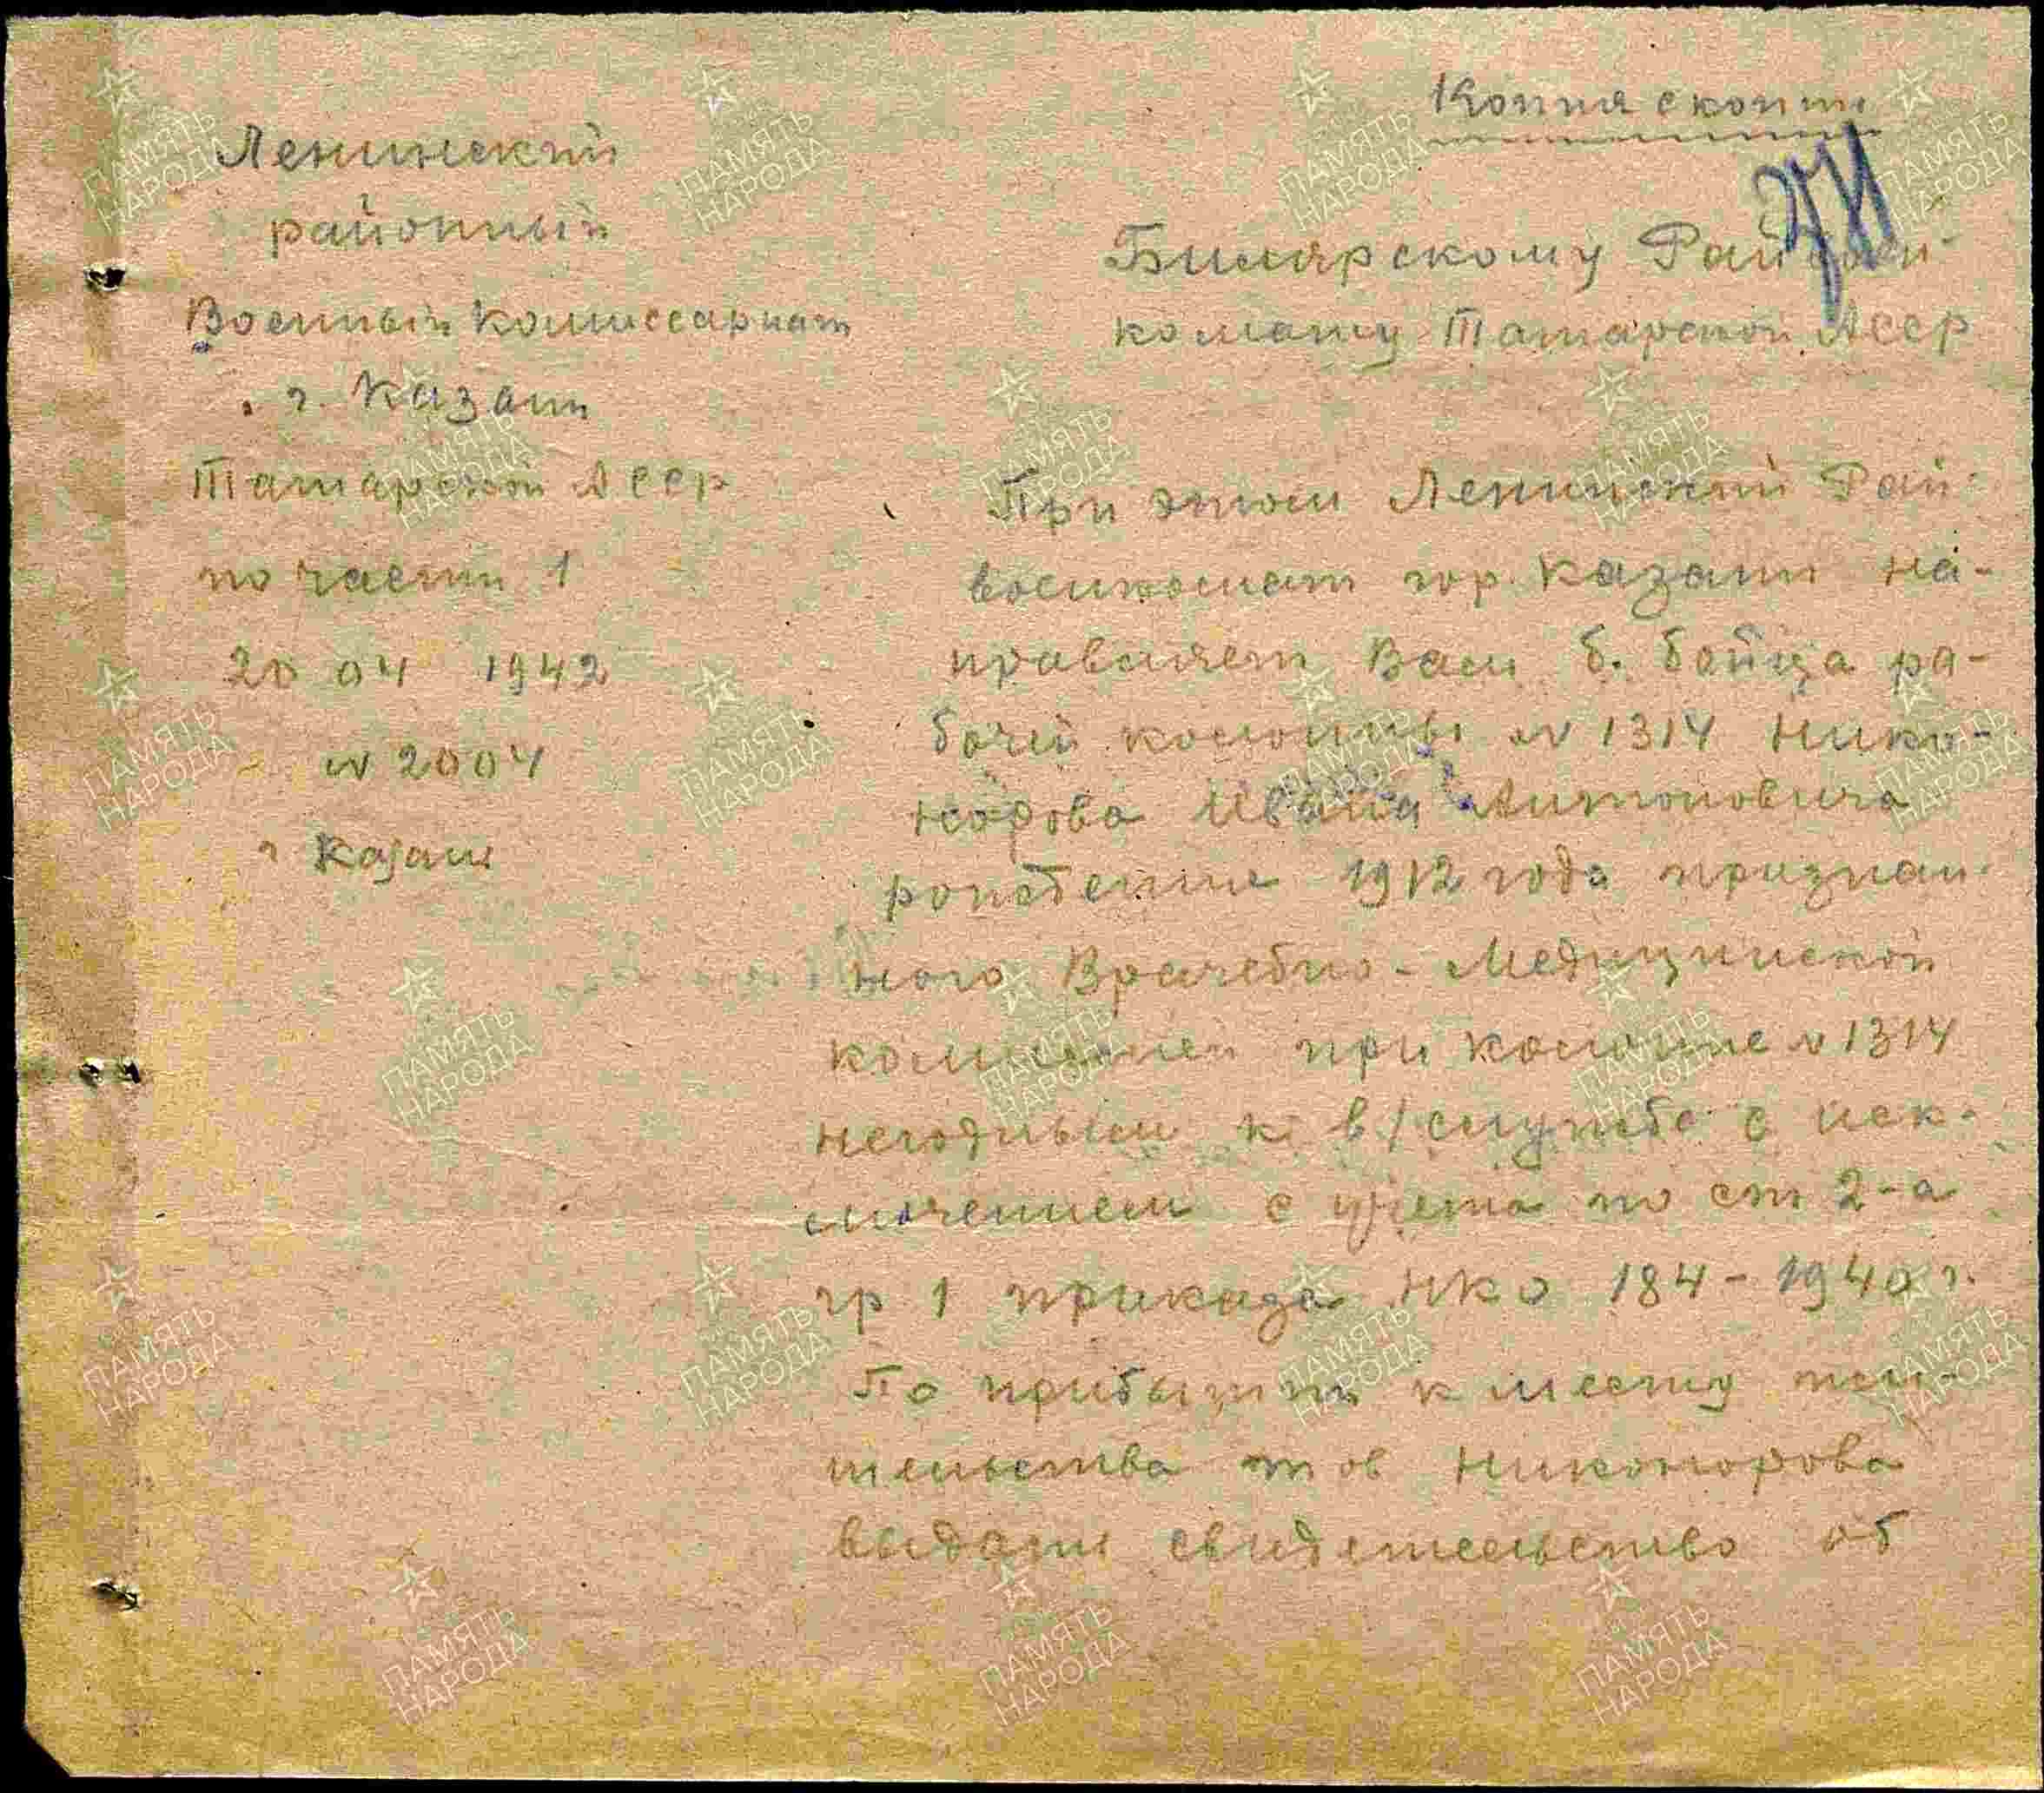 Копия с копии
Ленинский
районный
Военный Комиссариат
г. Казани
Татарской АССР
по части 1
20 04 1942
№ 2004
г Казань
Билярскому Райвоен-
комату Татарской АССР
При этом Ленинский Рай-
военкомат гор. Казани на-
правляет Вам б. бойца ра-
бочей колонны № 1314 Нико-
норова Ивана Антоновича
рождения 1912 года признан-
ного Врачебно-Медицинской
комиссией при колонне № 1314
негодным к в/службе с иск-
лючением с учета по ст 2-а
гр 1 приказа НКО 184-1940 г.
По прибытии к месту жи-
тельства тов Никонорова
выдать свидетельство об
ПАМЯТЬ
НАРОДА